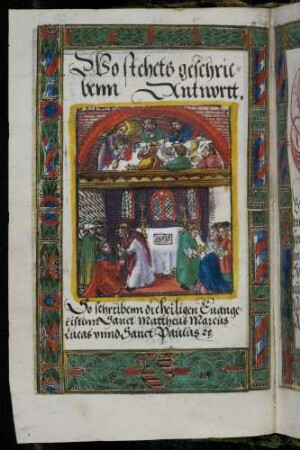 Wo stehets geschrie=
benn Antwortt.
So schreibenn die heiligen Euange
listenn Sanct Mattheus Marcus
Lucas vnnd Sanct Paulus